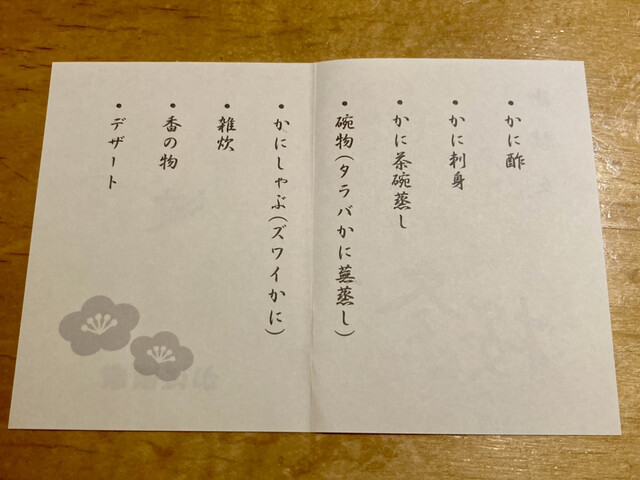 • かに酢
• かに刺身
• かに茶碗蒸し
• 碗物(タラバかに蕪蒸し)
• かにしゃぶ(ズワイかに)
• 雑炊
•香の物
• デザート